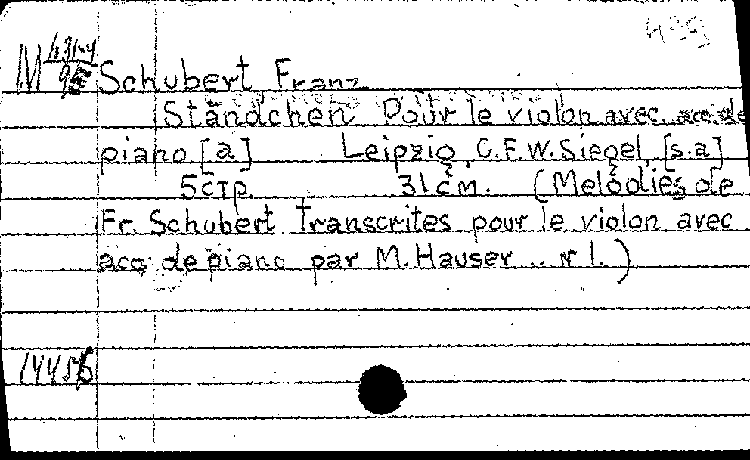 499
M Schubert Franz
Ständchen Pour le violon avec acc de
piano [a] Leipzig, C.F.W. Siegel, [s.a]
5 стр. 31 см. (Melodies de
Fr. Schubert Transcrites pour le violon avec
acc de piano par M. Hauser .. № 1.)